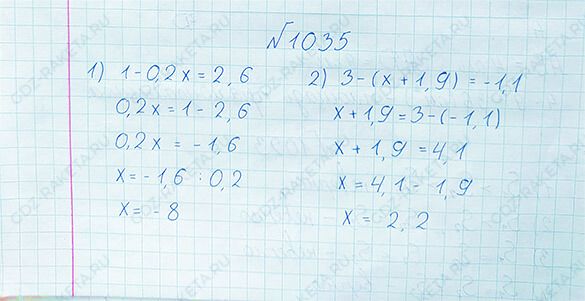 №1035
1) 1-0,2x=2,6
0,2x=1-2,6
0,2x = -1,6
x=-1,6 : 0,2
x=-8
2) 3-(x+1,9)=-1,1
x+1,9=3-(-1,1)
x+1,9=4,1
x=4,1-1,9
x= 2,2
GDZ-RAKETA.RU